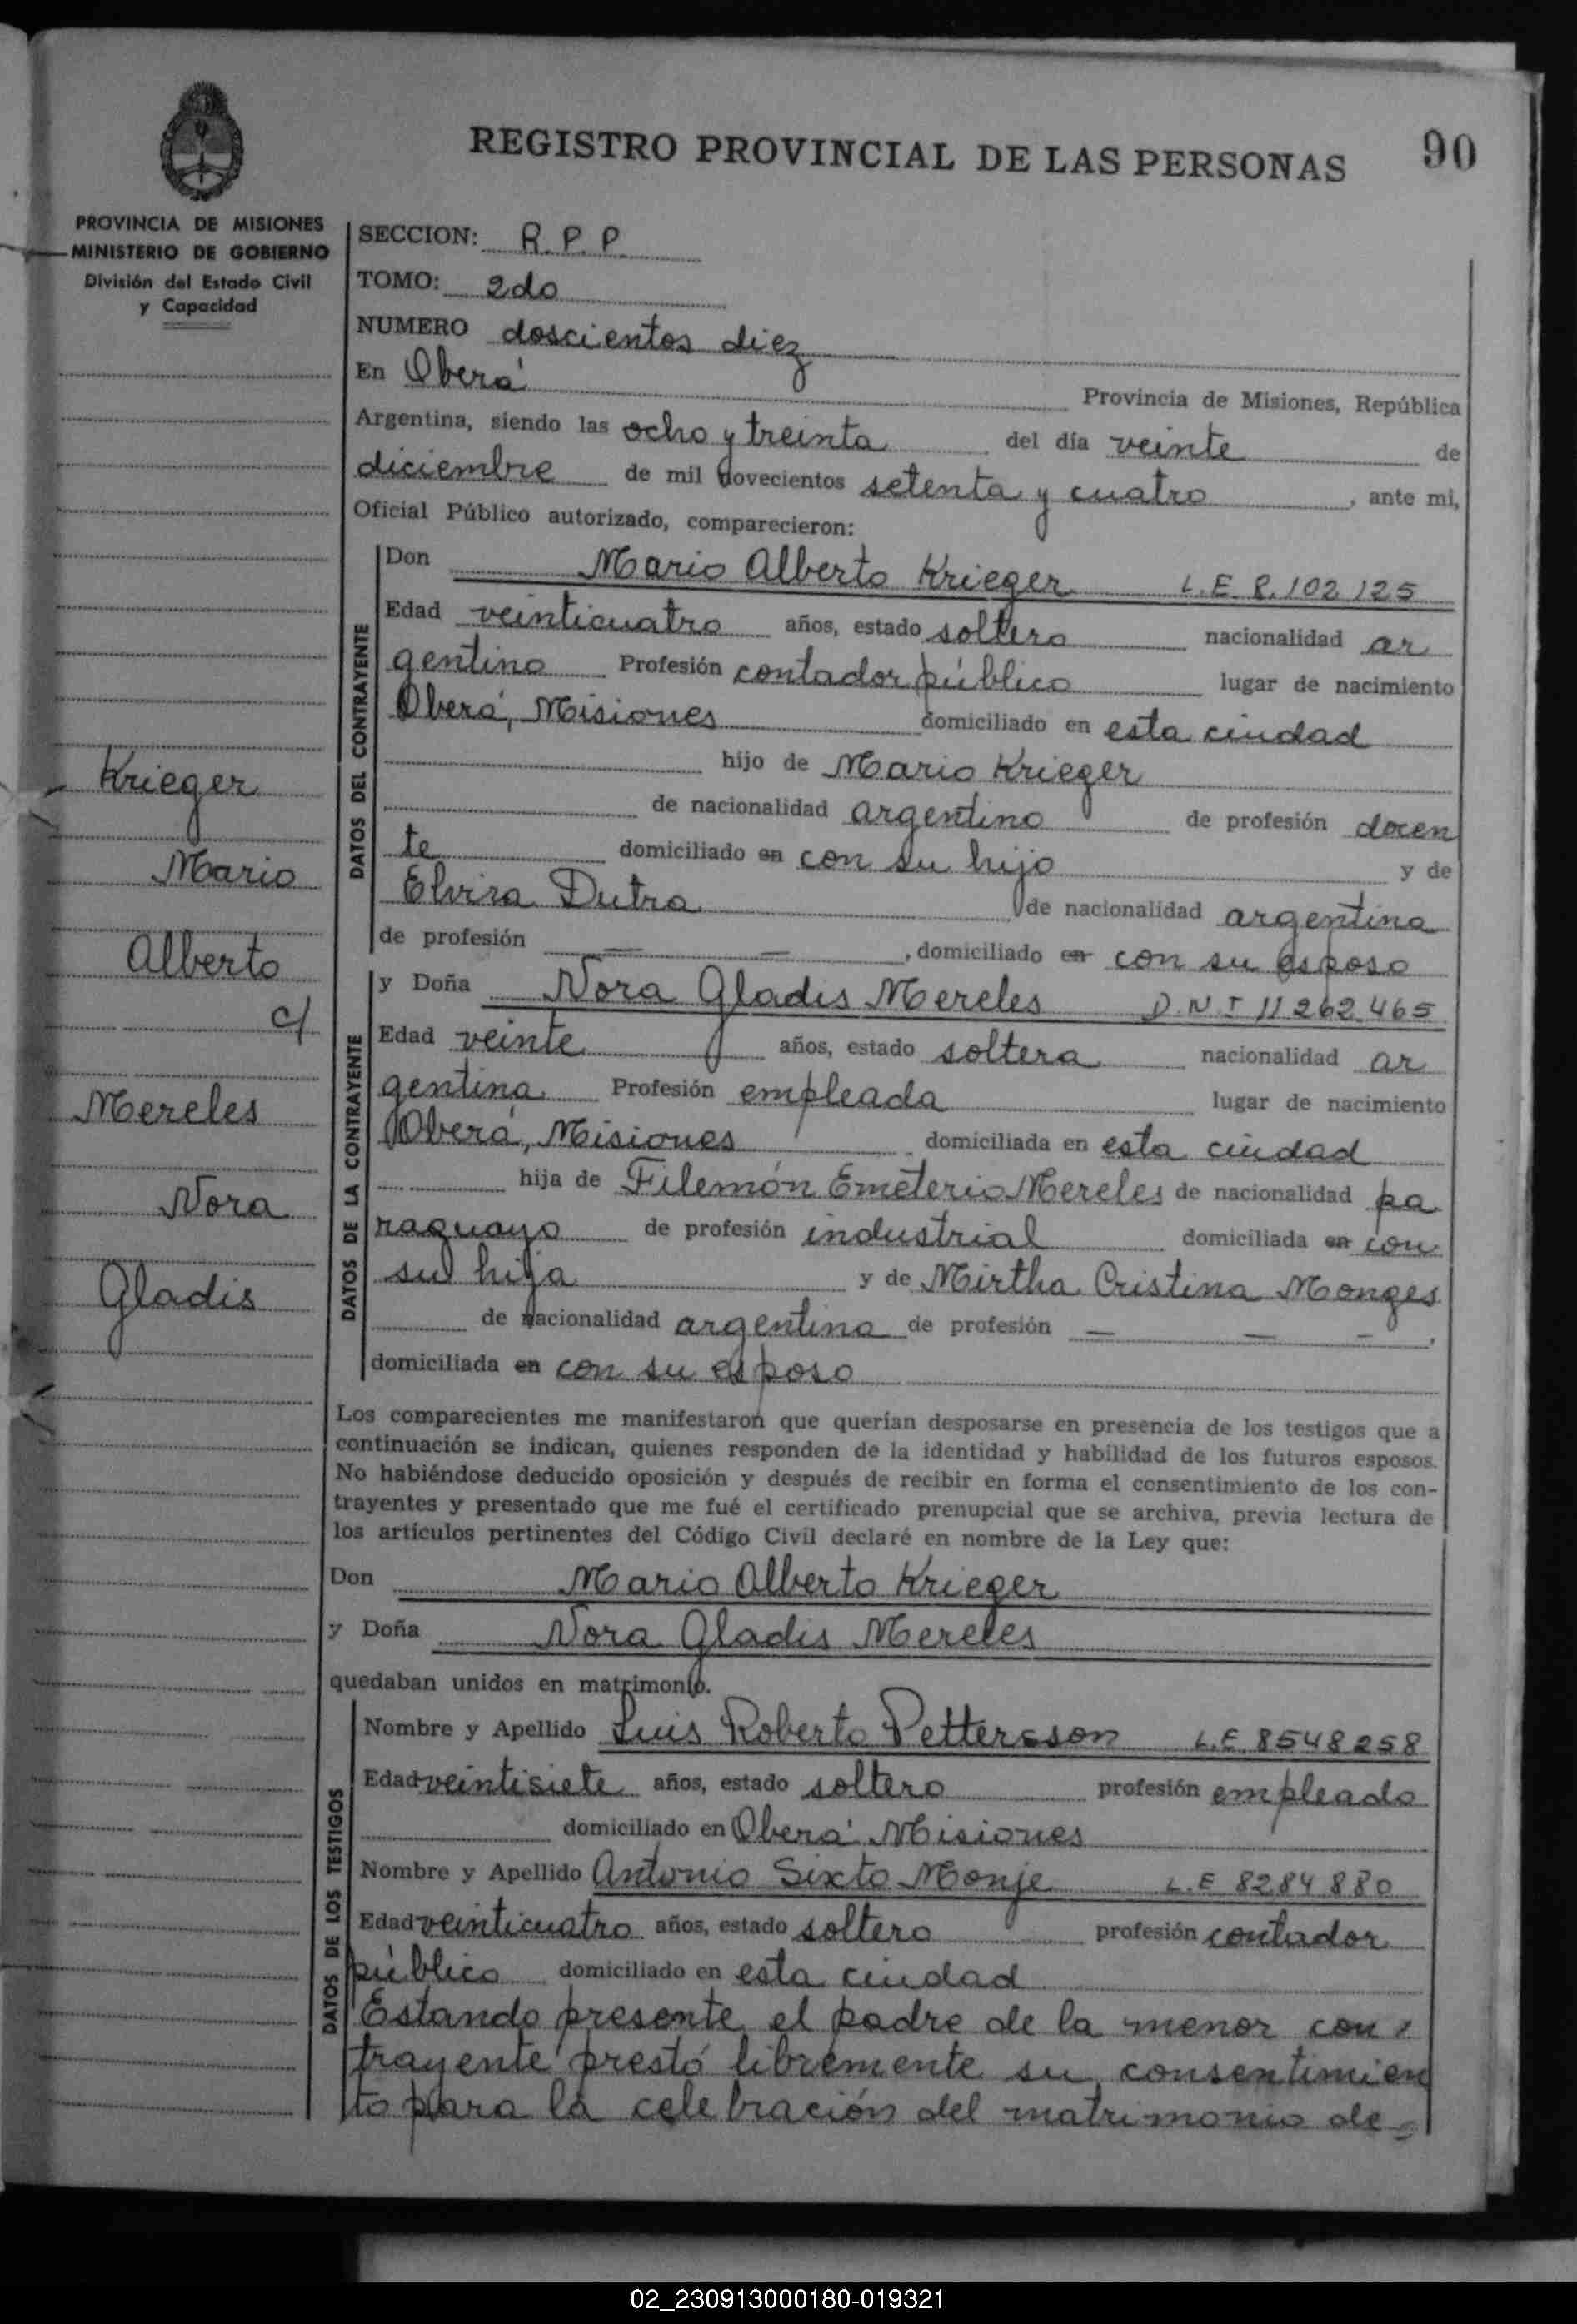 REGISTRO PROVINCIAL DE LAS PERSONAS
90
PROVINCIA DE MISIONES
MINISTERIO DE GOBIERNO
División del Estado Civil
y Capacidad
SECCION: R. P. P.
TOMO: 2do
NUMERO doscientos diez
En Oberá
Provincia de Misiones, República
Argentina, siendo las ocho y treinta del día veinte de
diciembre de mil novecientos setenta y cuatro, ante mi,
Oficial Público autorizado, comparecieron:
DATOS DEL CONTRAYENTE
Don Mario Alberto Krieger L.E. 8.102.125
Edad veinticuatro años, estado soltero nacionalidad ar
gentino Profesión contador público lugar de nacimiento
Oberá, Misiones domiciliado en esta ciudad
hijo de Mario Krieger
de nacionalidad argentino de profesión docen
te domiciliado en con su hijo y de
Elvira Dutra de nacionalidad argentina
de profesión — —, domiciliado en con su esposo
DATOS DE LA CONTRAYENTE
y Doña Nora Gladis Mereles D.N.I 11.262.465
Edad veinte años, estado soltera nacionalidad ar
gentina Profesión empleada lugar de nacimiento
Oberá, Misiones domiciliada en esta ciudad
hija de Filemón Emeterio Mereles de nacionalidad pa
raguayo de profesión industrial domiciliada en con
su hija y de Mirtha Cristina Monges
de nacionalidad argentina de profesión — — —,
domiciliada en con su esposo
Krieger
Mario
Alberto
c/
Mereles
Nora
Gladis
Los comparecientes me manifestaron que querían desposarse en presencia de los testigos que a
continuación se indican, quienes responden de la identidad y habilidad de los futuros esposos.
No habiéndose deducido oposición y después de recibir en forma el consentimiento de los con-
trayentes y presentado que me fué el certificado prenupcial que se archiva, previa lectura de
los artículos pertinentes del Código Civil declaré en nombre de la Ley que:
Don Mario Alberto Krieger
y Doña Nora Gladis Mereles
quedaban unidos en matrimonio.
DATOS DE LOS TESTIGOS
Nombre y Apellido Luis Roberto Pettersson L.E. 8548258
Edad veintisiete años, estado soltero profesión empleado
domiciliado en Oberá Misiones
Nombre y Apellido Antonio Sixto Monje L.E 8284880
Edad veinticuatro años, estado soltero profesión contador
público domiciliado en esta ciudad
Estando presente el padre de la menor con
trayente prestó libremente su consentimien
to para la celebración del matrimonio de=
02_230913000180-019321